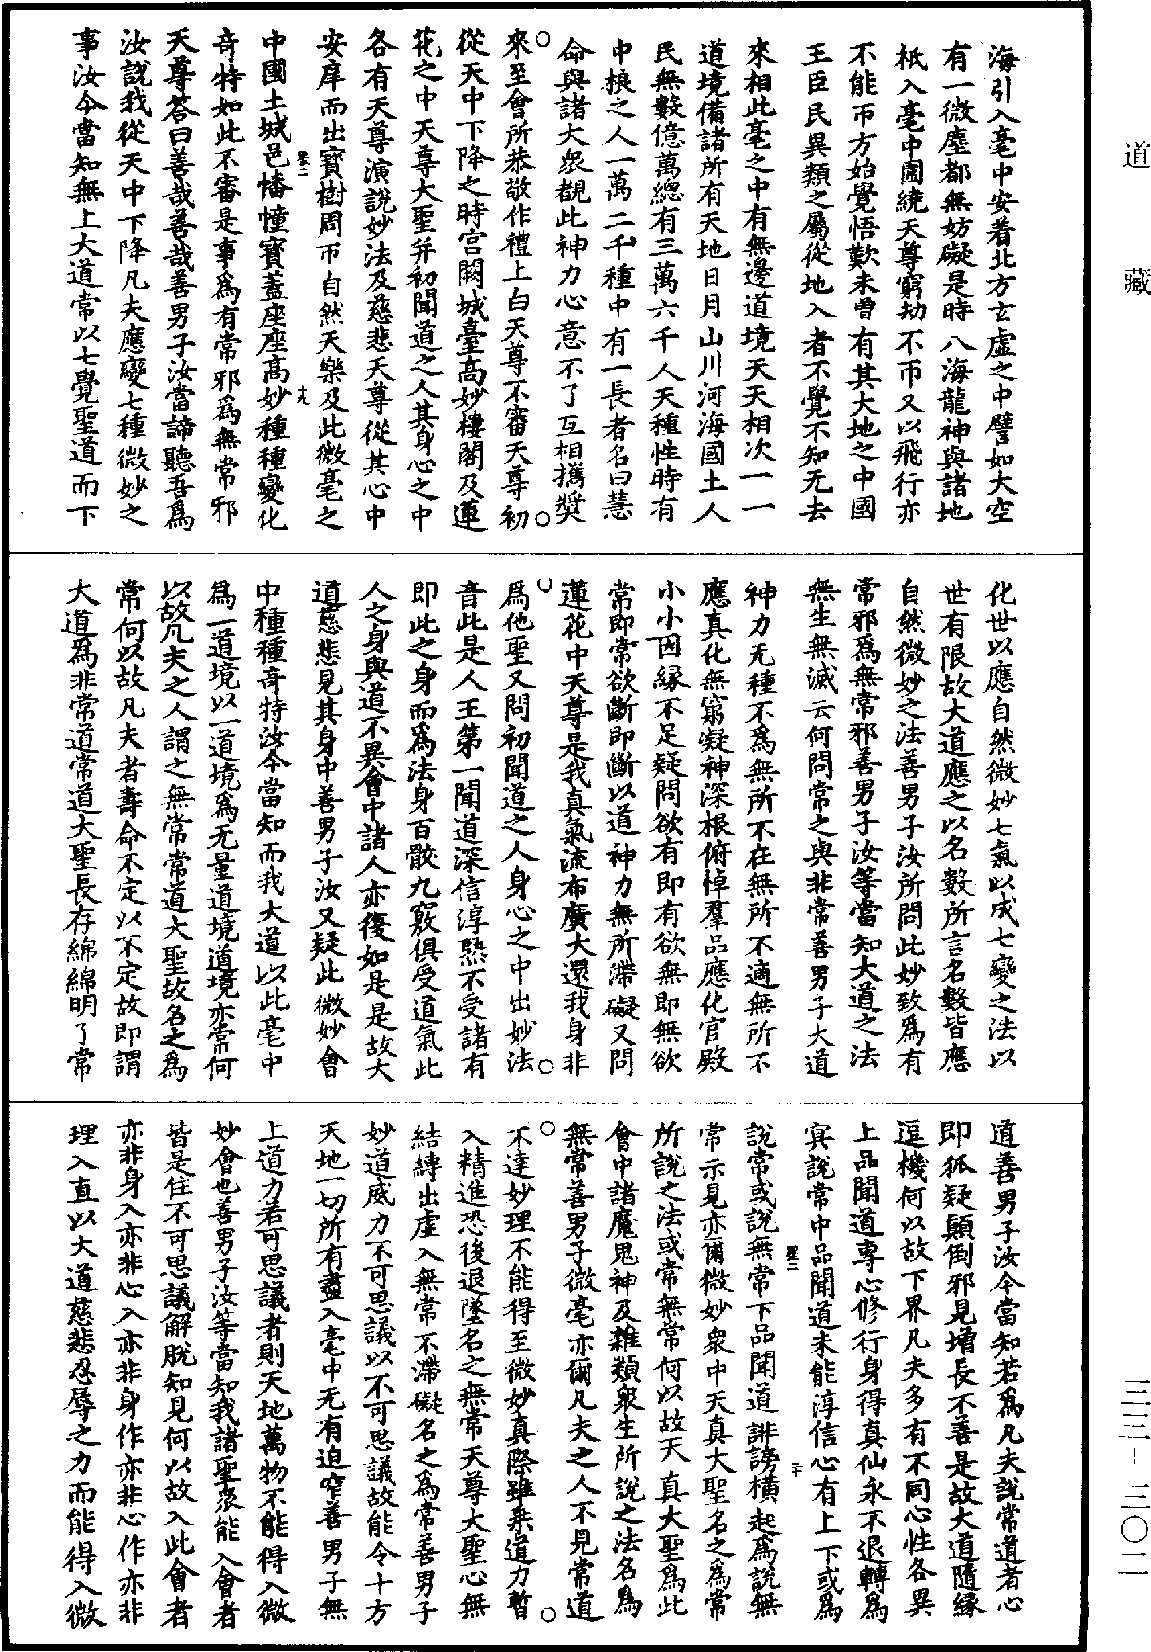 海引入毫中安着北方玄虛之中譬如大空
有一微塵都無妨礙是時八海龍神與諸地
祇入毫中圍繞天尊窮劫不帀又以飛行亦
不能帀方始覺悟歎未曾有其大地之中國
王臣民異類之屬從地入者不覺不知无去
來相此毫之中有無邊道境天天相次一一
道境備諸所有天地日月山川河海國土人
民無數億萬總有三萬六千人天種性時有
中根之人一萬二千種中有一長者名曰慧
命與諸大眾覩此神力心意不了互相擕獎
來至會所恭敬作禮上白天尊不審天尊初
從天中下降之時宮闕城臺高妙樓閣及蓮
花之中天尊大聖并初聞道之人其身心之中
各有天尊演說妙法及慈悲天尊從其心中
安庠而出寶樹周帀自然天樂及此微毫之
中國土城邑幡幢寶蓋座座高妙種種變化
奇特如此不審是事為有常邪為無常邪
天尊答曰善哉善哉善男子汝當諦聽吾為
汝說我從天中下降凡夫應變七種微妙之
事汝今當知無上大道常以七覺聖道而下
化世以應自然微妙七氣以成七變之法以
世有限故大道應之以名數所言名數皆應
自然微妙之法善男子汝所問此妙致為有
常邪為無常邪善男子汝等當知大道之法
無生無滅云何問常之與非常善男子大道
神力无種不為無所不在無所不適無所不
應真化無窮凝神深根俯悼羣品應化官殿
小小因緣不足疑問欲有即有欲無即無欲
常即常欲斷即斷以道神力無所滯礙又問
蓮花中天尊是我真氣流布廣大還我身非
為他聖又問初聞道之人身心之中出妙法
音此是人王第一聞道深信淳熟不受諸有
即此之身而為法身百骸九竅俱受道氣此
人之身與道不異會中諸人亦復如是是故大
道慈悲見其身中善男子汝又疑此微妙會
中種種奇特汝今當知而我大道以此毫中
為一道境以一道境為无量道境道境亦常何
以故凡夫之人謂之無常常道大聖故名之為
常何以故凡夫者壽命不定以不定故即謂
大道為非常道常道大聖長存綿綿明了常
道善男子汝今當知若為凡夫說常道者心
即狐疑顛倒邪見增長不善是故大道隨緣
逗機何以故下界凡夫多有不同心性各異
上品聞道專心修行身得真仙永不退轉為
㝠說常中品聞道未能淳信心有上下或為
說常或說無常下品聞道誹謗橫起為說無
常示見亦爾微妙眾中天真大聖名之為常
所說之法或常無常何以故天真大聖為此
會中諸魔鬼神及雜類眾生所說之法名為
無常善男子微毫亦爾凡夫之人不見常道
不達妙理不能得至微妙真際雖乘道力暫
入精進恐後退墜名之無常天尊大聖心無
結縛出虛入無常不滯礙名之為常善男子
妙道威力不可思議以不可思議故能令十方
天地一切所有盡入毫中无有迫窄善男子無
上道力若可思議者則天地萬物不能得入微
妙會也善男子汝等當知我諸聖眾能入會者
皆是住不可思議解脫知見何以故入此會者
亦非身入亦非心入亦非身作亦非心作亦非
理入直以大道慈悲忍辱之力而能得入微
道藏
三三-三〇二